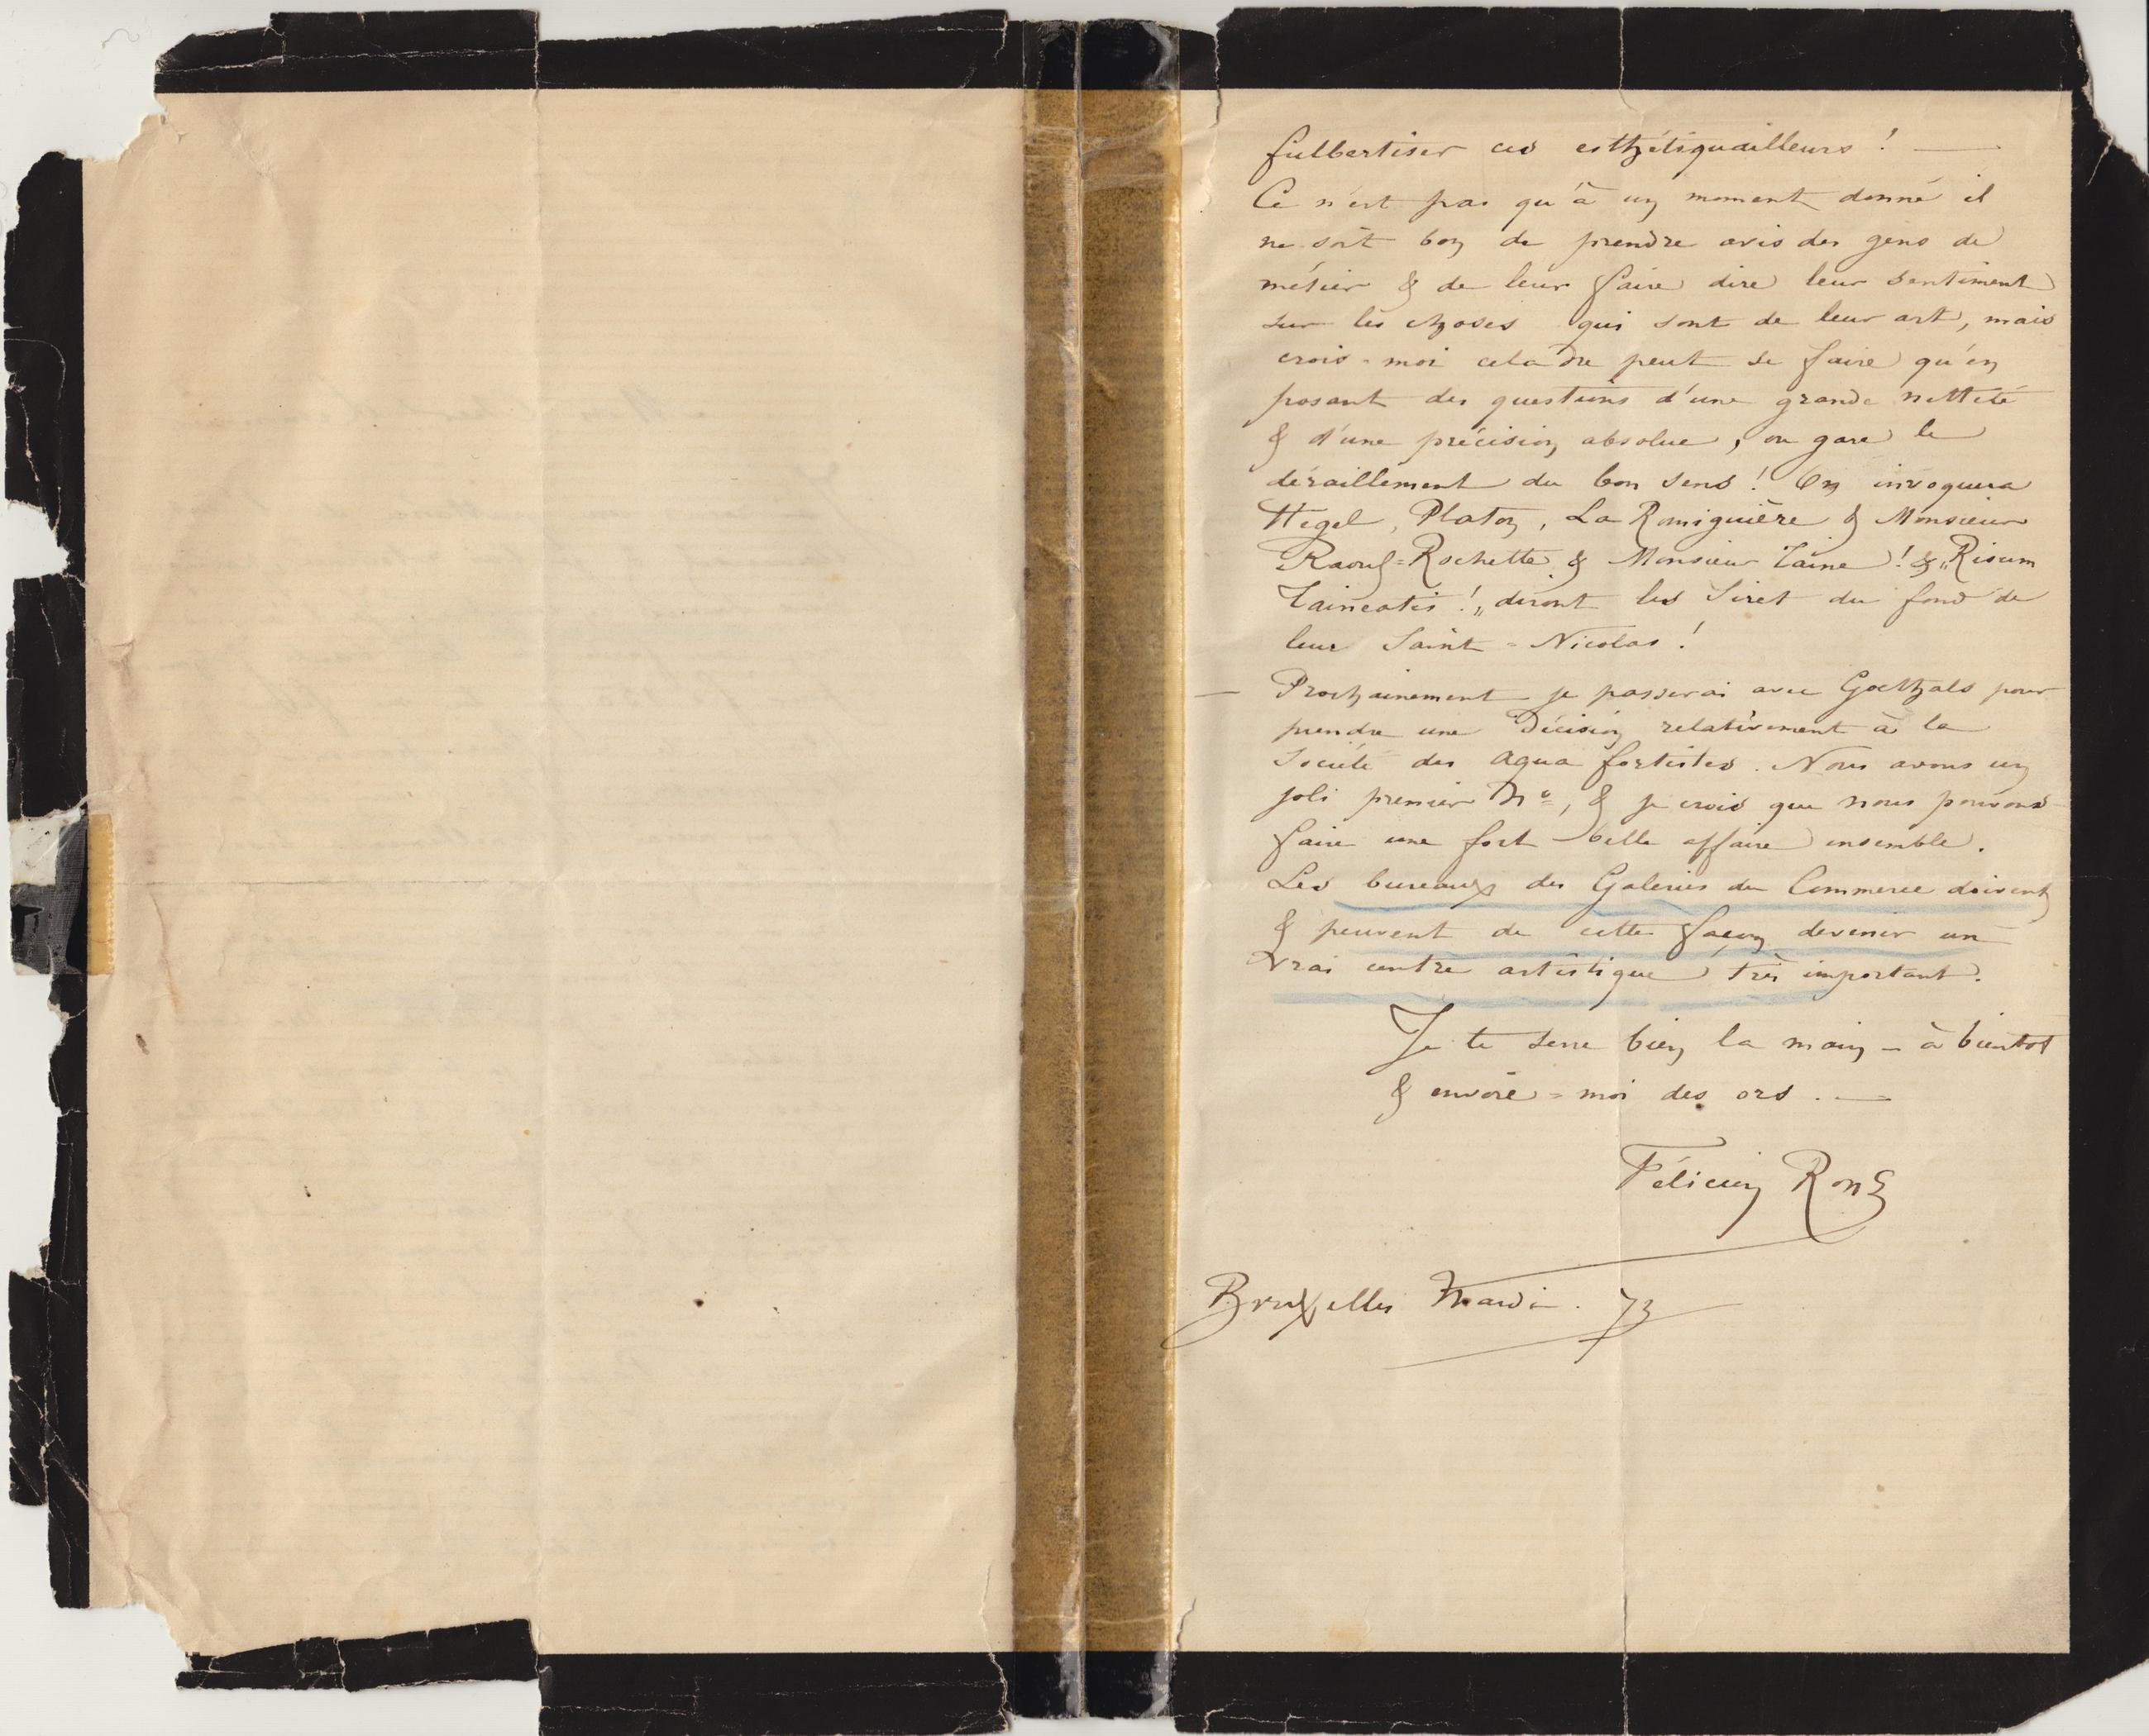 fulbertiser ces esthétiquailleurs ! —
Ce n'est pas qu'à un moment donné il
ne soit bon de prendre avis des gens de
métier & de leur faire dire leur sentiment
sur les choses qui sont de leur art, mais
crois-moi cela ne peut se faire qu'en
posant des questions d'une grande netteté
& d'une précision absolue, ou gare le
déraillement du bon sens ! On invoquera
Hegel, Platon, La Romiguière & Monsieur
Raoul=Rochette & Monsieur Taine ! & „Risum
Taineatis !„ diront les Siret du fond de
leur Saint=Nicolas !
— Prochainement je passerai avec Goethals pour
prendre une Décision relativement à la
Société des Aqua fortistes. Nous avons un
joli premier Nº, & je crois que nous pouvons
faire une fort belle affaire ensemble.
Les bureaux des Galeries du Commerce doivent
& peuvent de cette façon devenir un
vrai centre artistique très important.
Je te serre bien la main — à bientot
& envoie=moi des ors. —
Félicien Rops
Bruxelles Mardi. 73